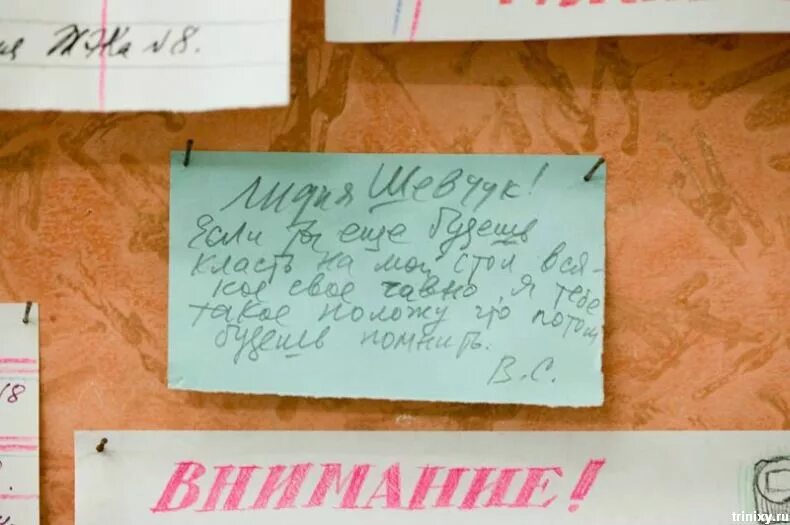 ЖЭКа №8.
Лидия Шевчук!
Если ты еще будешь
класть на мой стол вся-
кое свое гавно, я тебе
такое положу что потом
будешь помнить.
В.С.
№8
ВНИМАНИЕ!
trinixy.ru